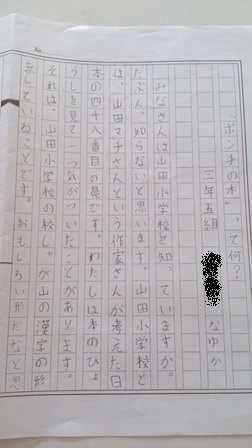 No.
「ポンチの木」って何?
三年五組 なゆか
みなさんは山田小学校を知っていますか。
たぶん、知らないと思います。山田小学校と
は、山田マチさんという作家さんが考えた日
本の四十八番目の県です。わたしは本のひょ
うしを見て一つ気がついたことがあります。
それは、山田小学校の校しゃが山の漢字の形
をしていることです。おもしろい形だなと思